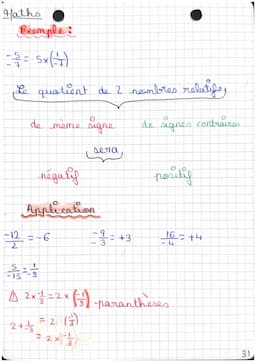 Maths
Exemple :
-5/-7 = 5x(1/-7)
Le quotient de 2 nombres relatifs
de même signe de signes contraires
sera
négatif positif
Application
-12/2 = -6 -9/-3 = +3 16/-4 = +4
5/-15 = 1/-3
⚠ 2x-1/3 = 2x(-1/3) - paranthèses
2+1/-3 = 2 (-1/3)
= 2x(-1/3)
31